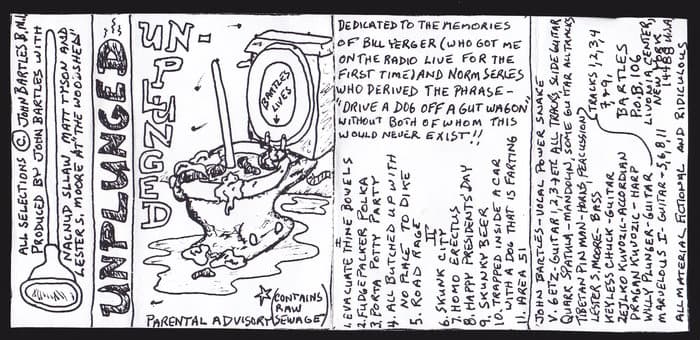 ALL SELECTIONS © JOHN BARTLES B.M.I.
PRODUCED BY JOHN BARTLES WITH
NACNUD SLLAW, MATT TYSON AND
LESTER S. MOORE AT THE WOODSHED
UNPLUNGED
UN-
PLUNGED
BARTLES
LIVES
PARENTAL ADVISORY
(CONTAINS
RAW
SEWAGE)
DEDICATED TO THE MEMORIES
OF BILL YERGER (WHO GOT ME
ON THE RADIO LIVE FOR THE
FIRST TIME) AND NORM SERLES
WHO DERIVED THE PHRASE-
"DRIVE A DOG OFF A GUT WAGON"
WITHOUT BOTH OF WHOM THIS
WOULD NEVER EXIST!!
I
1. EVACUATE THINE BOWELS
2. FUDGEPACKER POLKA
3. PORTA POTTY PARTY
4. ALL BUTCHED UP WITH
NO PLACE TO DIKE
5. ROAD RAGE
II
6. SKUNK CITY
7. HOMO ERECTUS
8. HAPPY PRESIDENTS' DAY
9. SKUNKY BEER
10. TRAPPED INSIDE A CAR
WITH A DOG THAT IS FARTING
11. AREA 51
JOHN BARTLES-VOCAL POWER SNAKE
V. GETZ-GUITAR 1,2,3,7 ETC ALL TRACKS, SLIDE GUITAR
QUARK SPATULA-MANDOLIN, SOME GUITAR ALL TRACKS
TIBETAN PIN MAN-HARP, PERCUSSION
LESTER S. MOORE-BASS (TRACKS 1,2,3,4
7,+9,
KEYLESS CHUCK-GUITAR
ZEJLKO KUVOZIC-ACCORDIAN
DRAGAN KUVOZIC-HARP
WILLY PLUNGER-GUITAR
MARVELOUS I-GUITAR-5,6,8,11
BARTLES
P.O.B. 106
LIVONIA CENTER,
NEW YORK
14488 U.S.A.
ALL MATERIAL FICTIONAL AND RIDICULOUS